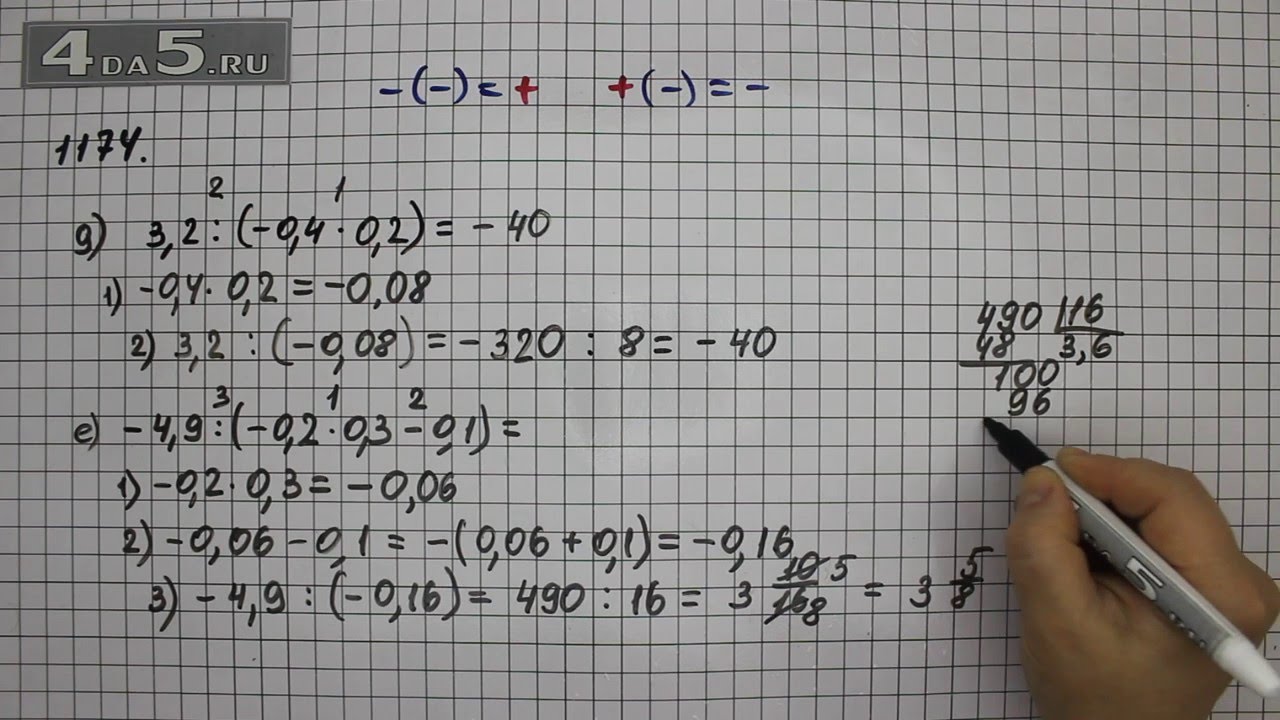 4DA5.RU
-(-)=+ +(-)=-
1174.
2 1
д) 3,2:(-0,4·0,2)=-40
1) -0,4·0,2=-0,08
2) 3,2:(-0,08)=-320:8=-40
3 1 2
е) -4,9:(-0,2·0,3-0,1)=
1) -0,2·0,3=-0,06
2) -0,06-0,1=-(0,06+0,1)=-0,16
3) -4,9:(-0,16)=490:16=3 10/16 5/8=3 5/8
490 16
48 3,6
100
96
5